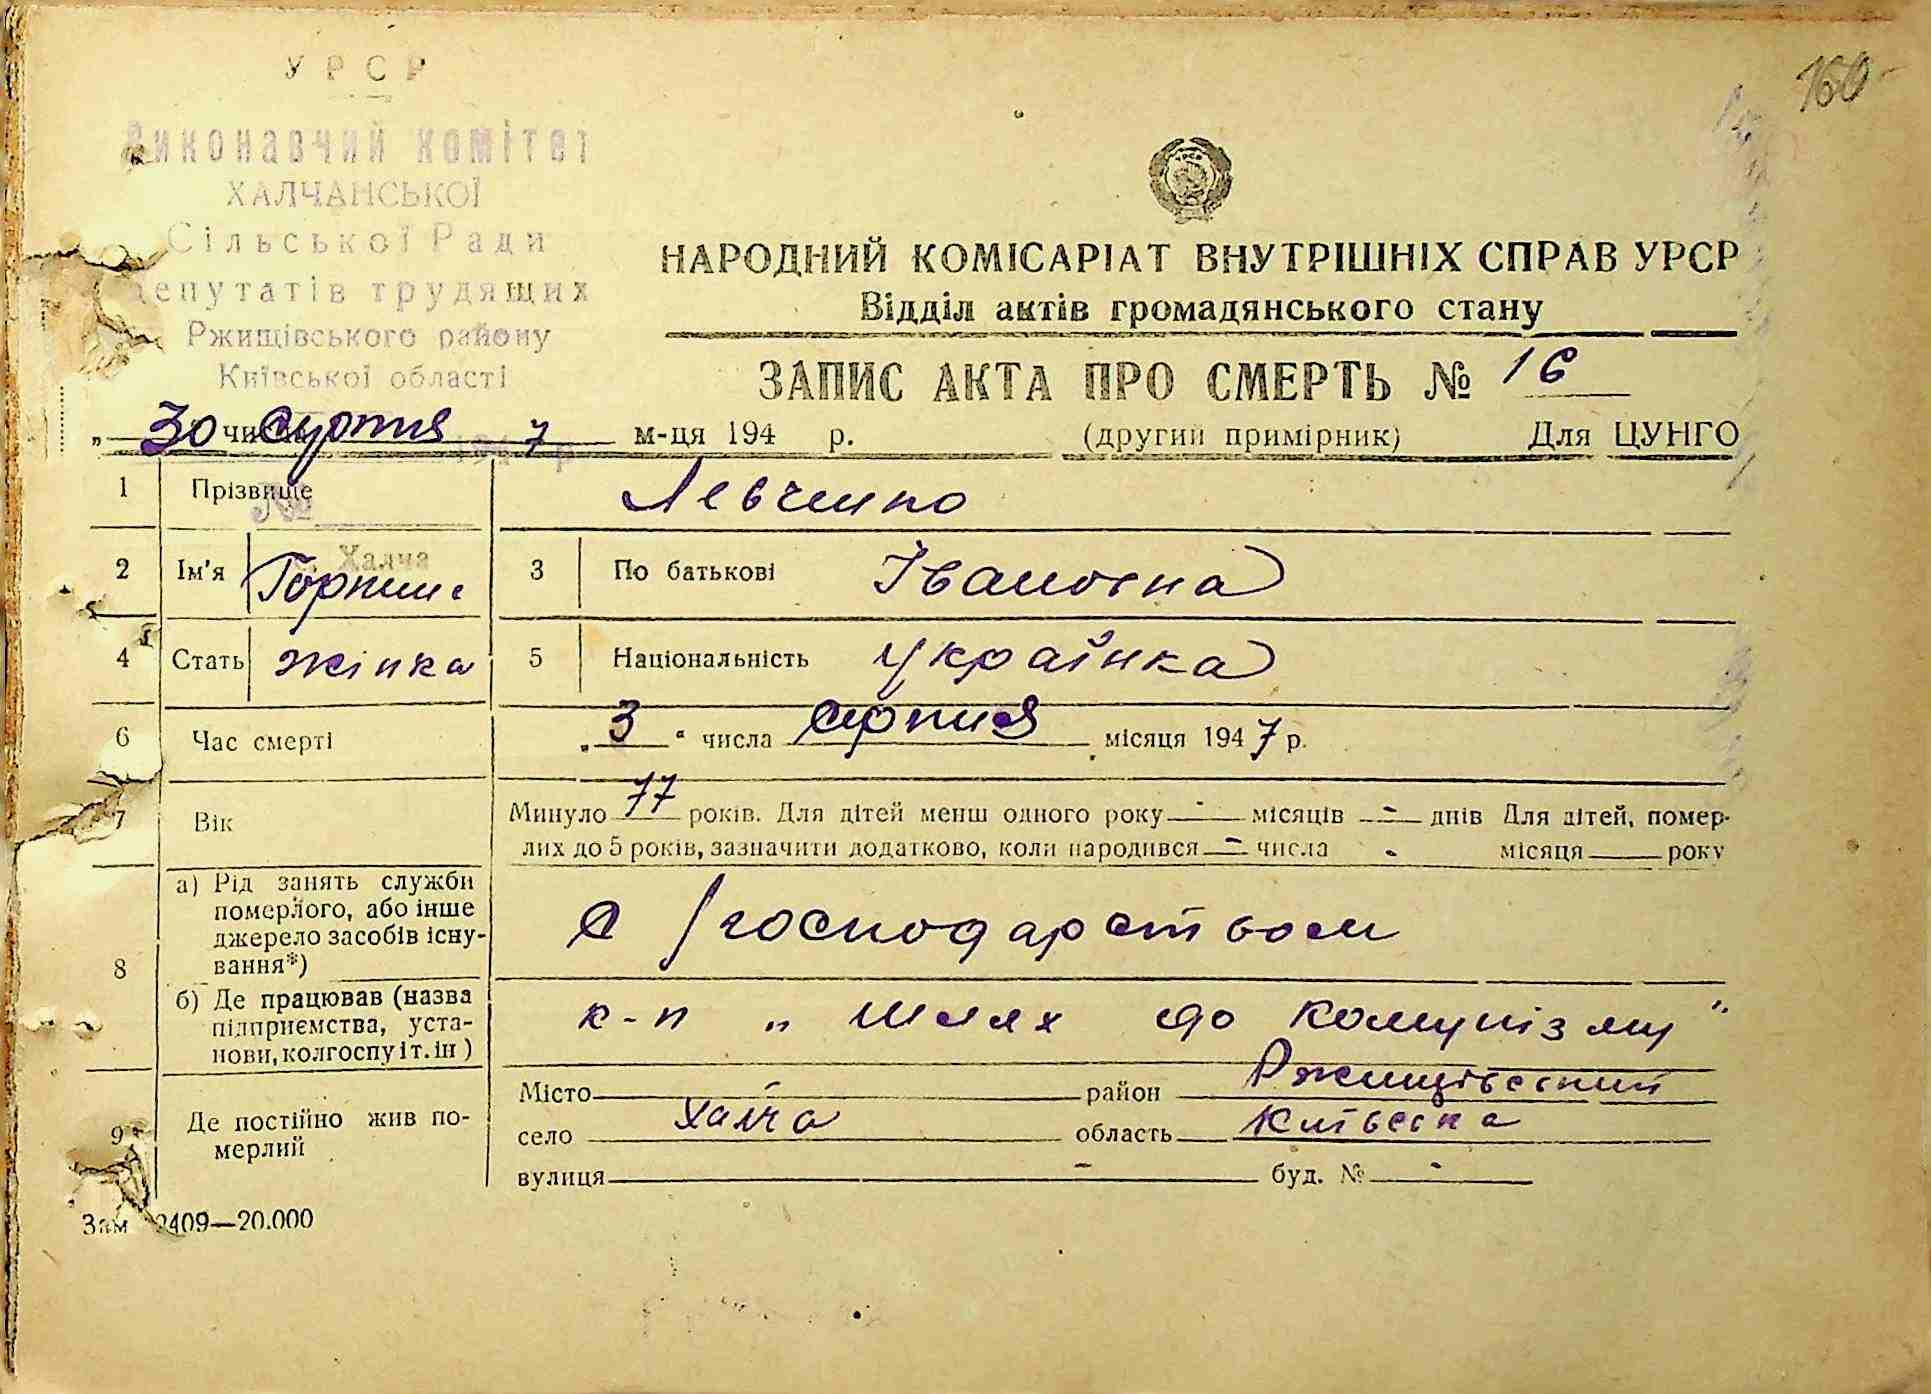 160
УРСР
Виконавчий комітет
ХАЛЧАНСЬКОЇ
Сільської Ради
депутатів трудящих
Ржищівського району
Київської області
НАРОДНИЙ КОМІСАРІАТ ВНУТРІШНІХ СПРАВ УРСР
Відділ актів громадянського стану
ЗАПИС АКТА ПРО СМЕРТЬ № 16
„ 30 числа серпня 7 м-ця 194 р. (другий примірник) Для ЦУНГО
1 Прізвище Левченко
№
с. Халча
2 Ім'я Горпина 3 По батькові Івановна
4 Стать жінка 5 Національність українка
6 Час смерті „ 3 " числа серпня місяця 1947 р.
7 Вік Минуло 77 років. Для дітей менш одного року - місяців - днів Для дітей, помер-
лих до 5 років, зазначити додатково, коли народився - числа - місяця року
8 а) Рід занять служби
померлого, або інше
джерело засобів існу-
вання*)
С/господарством
б) Де працював (назва
підприємства, уста-
нови, колгоспу і т. ін)
к-п „Шлях до комунізму"
9 Де постійно жив по-
мерлий
Місто - район Ржищівський
село Халча область Київська
вулиця - буд. № -
Зам 2409—20.000